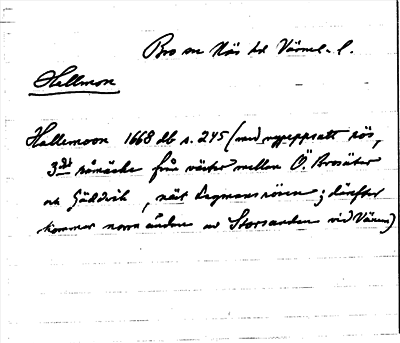 Bro sn Näs hd Värml. l.
Hallmon
Hallemoon 1668 db s. 245 (med nyuppsatt rös,
3dt råmärke från väster mellan Ö. Brosäter
och Gäddvik, näst Legmansrösen; därefter
kommer norra änden av Storsanden vid Vänern)